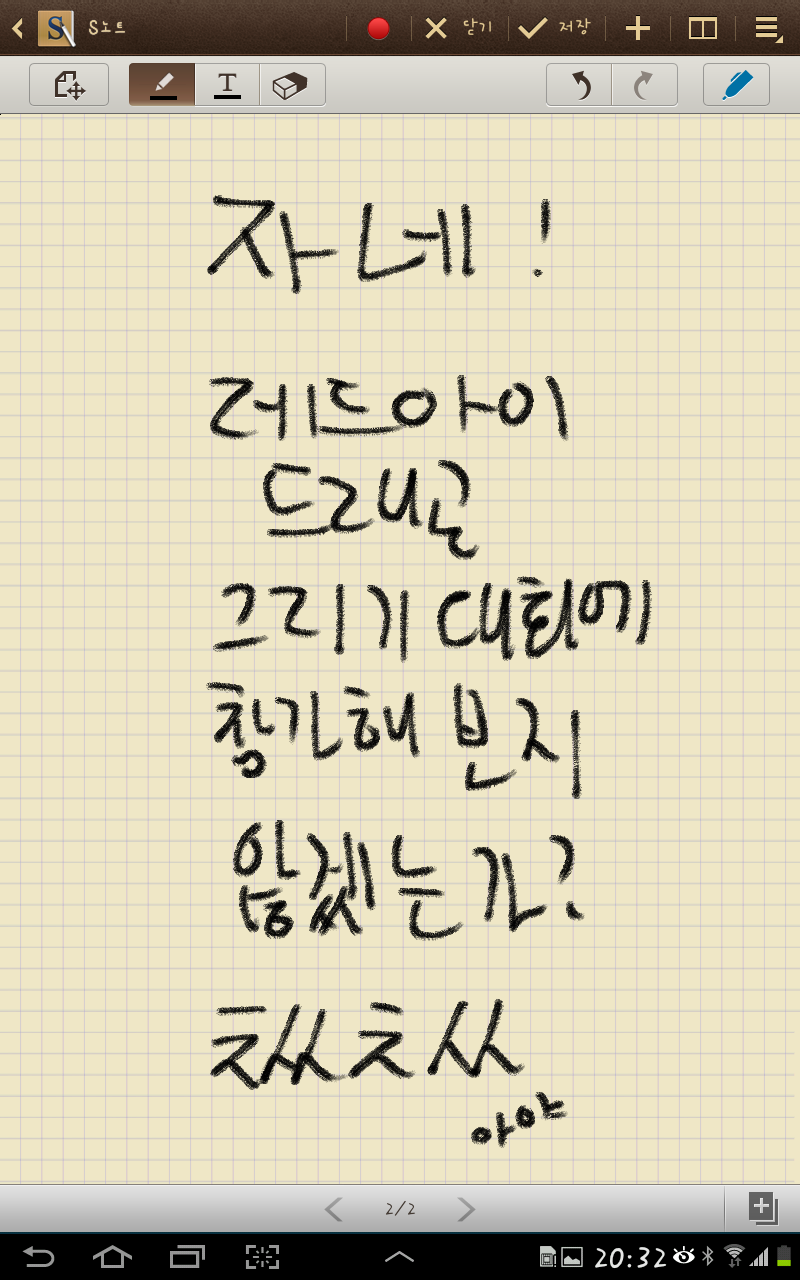 S노트
닫기
저장
T
자네!
레드아이
드래곤
그리기 대회에
참가해 보지
않겠는가?
ㅊㅆㅊㅆ
아야
2/2
20:32